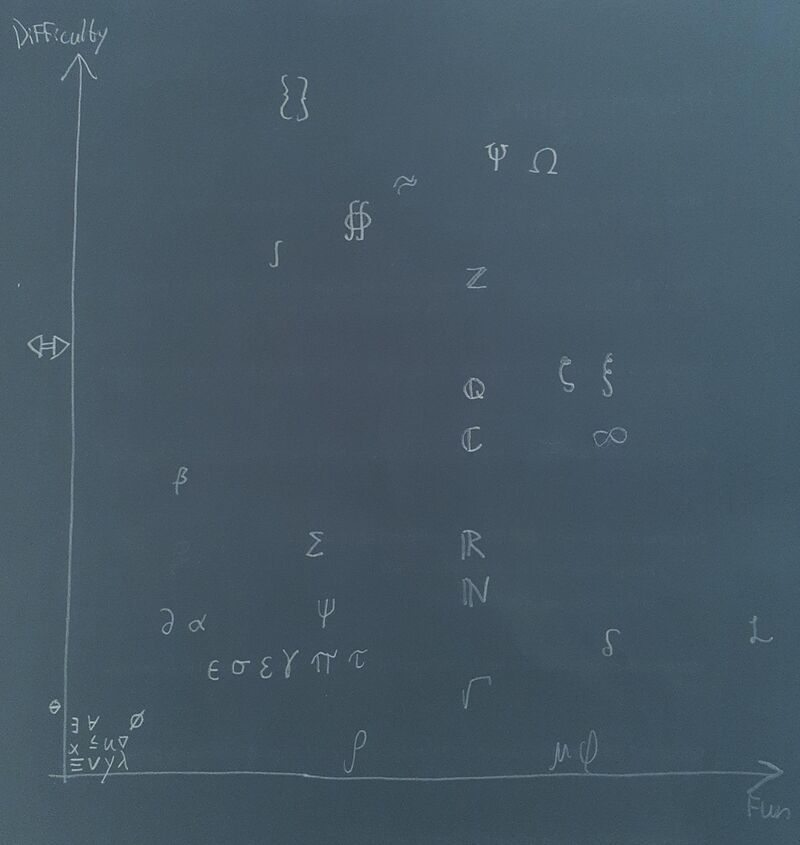 Difficulty
{}
Ψ Ω
≈
∯
∫
ℤ
⇔
ℚ
ζ ξ
ℂ
∞
β
Σ
ℝ
ℕ
ψ
∂ α
δ
L
ϵ σ ε γ π τ
√
θ
∃ ∀ ∅
x ≤ ∩ ∇
≡ ∨ y λ
ρ
μ φ
Fun